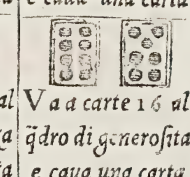 e caua una carta
al Va a carte 16 al
ra q̃dro di generosita
ta e caua una carta